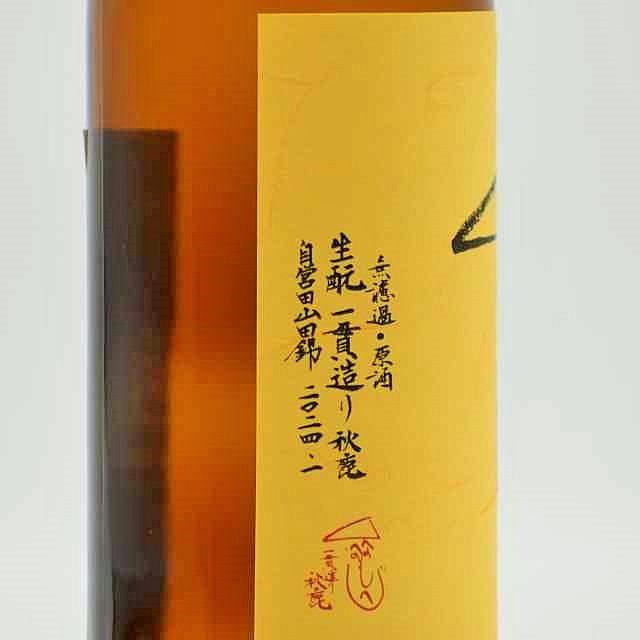 無濾過・原酒
生酛一貫造り 秋鹿
自営田山田錦 二〇二四、一
一貫造り
秋鹿